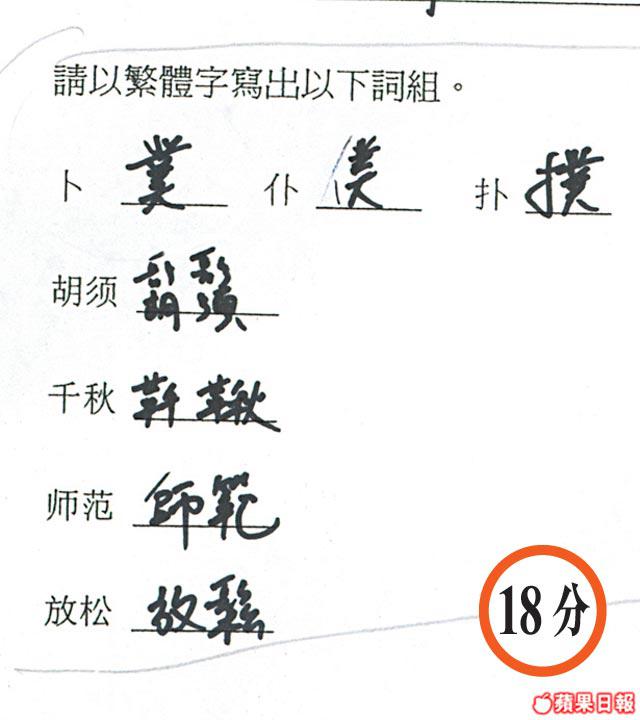 請以繁體字寫出以下詞組。
卜 仆 僕 扑 撲
胡须 鬍鬚
千秋 靬 鞦
师范 師範
放松 放鬆
18分
蘋果日報